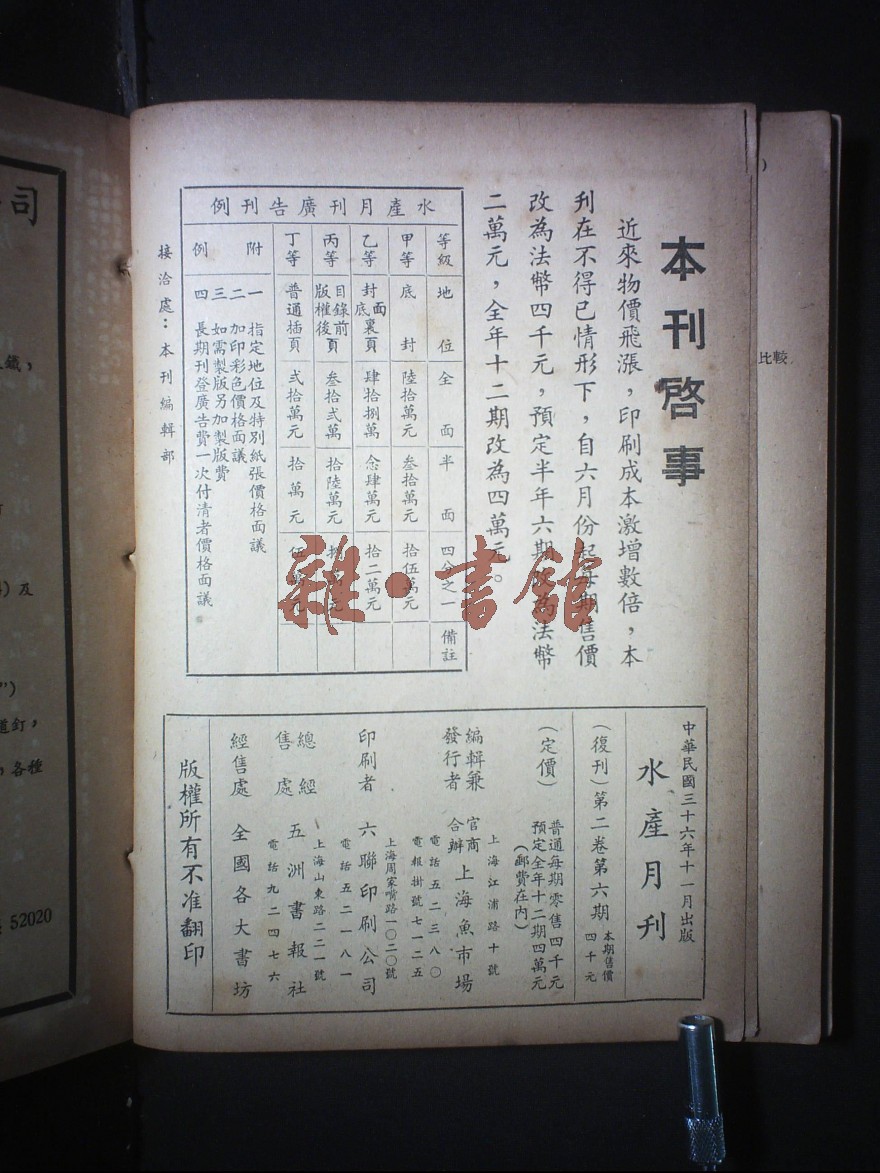 本刊啓事
近來物價飛漲，印刷成本激增數倍，本
刋在不得已情形下，自六月份起每期售價
改為法幣四千元，預定半年六期改為法幣
二萬元，全年十二期改為四萬元。
水產月刊廣告刊例
等級 地位 全面 半面 四分之一 備註
甲等 底封 陸拾萬元 叁拾萬元 拾伍萬元
乙等 封面底裏頁 肆拾捌萬 念肆萬元 拾二萬元
丙等 目錄前版權後頁 叁拾貳萬 拾陸萬元 萬元
丁等 普通插頁 貳拾萬元 拾萬元 伍萬元
附例
一 指定地位及特別紙張價格面議
二 加印彩色價格面議
三 如需製版另加製版費
四 長期刊登廣告費一次付清者價格面議
接洽處：本刊編輯部
中華民國三十六年十一月出版
水產月刊
（復刊）第二卷第六期 本期售價四千元
（定價） 普通每期零售四千元
預定全年十二期四萬元
（郵費在內）
編輯兼發行者 官商合辦 上海魚市場
上海江浦路十號
電話五二三八〇
電報掛號七一二五
印刷者 六聯印刷公司
上海周家嘴路一〇二〇號
電話五二一八一
總經售處 五洲書報社
上海山東路二二一號
電話九二四七六
經售處 全國各大書坊
版權所有不准翻印
雜·書館
司
鐵，
及
道釘，
各種
52020
比較